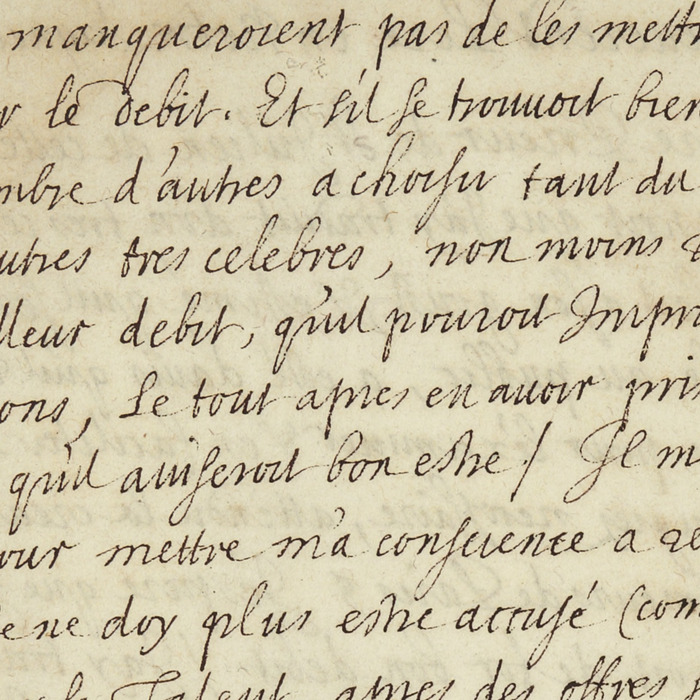 manqueroient pas de les mettr
r le debit. Et s'il se trouvoit bien
mbre d'autres a choisir tant du
utres tres celebres, non moins
lleur debit, qu'il pouroit Impri
ons, Le tout apres en avoir pris
qu'il aviseroit bon estre / Il m
our mettre m'a conscience a re
e ne doy plus estre accusé (com
Talent, apres des offres